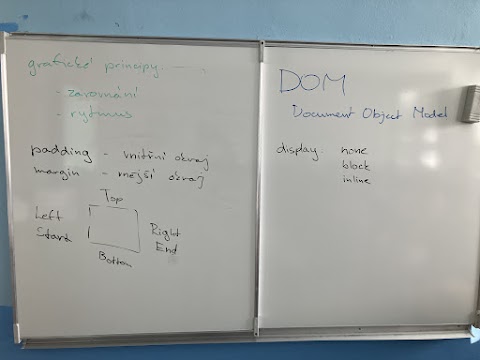 grafické principy
- zarovnání
- rytmus
padding - vnitřní okraj
margin - vnější okraj
Top
Left
Start
Right
End
Bottom
DOM
Document Object Model
display: none
block
inline